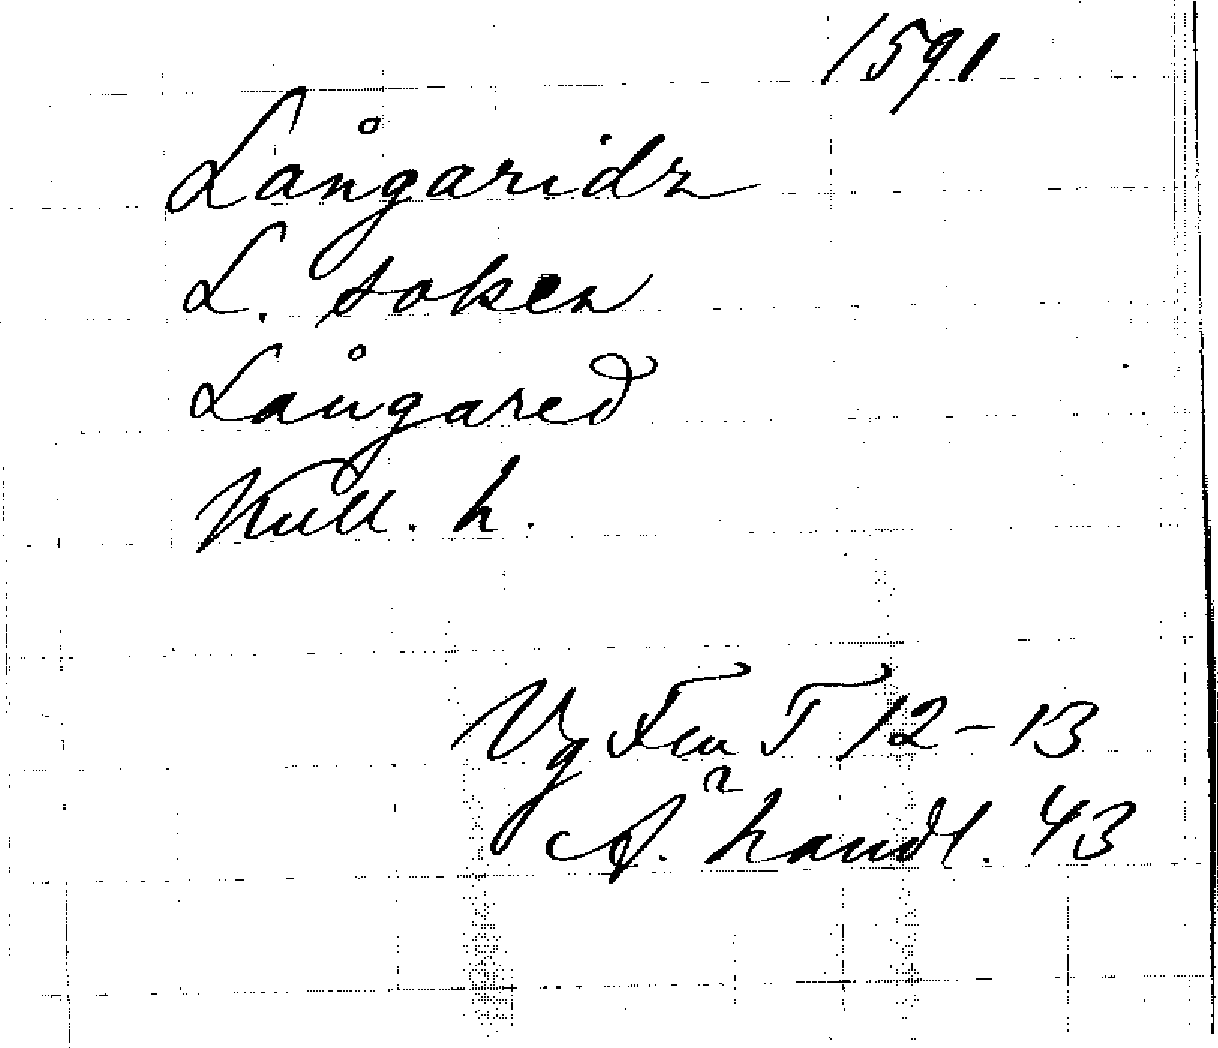 1591
Långaridz
L. soken
Långared
Kull. h.
Vg Fm T 12-13
A. 2 handl. 43